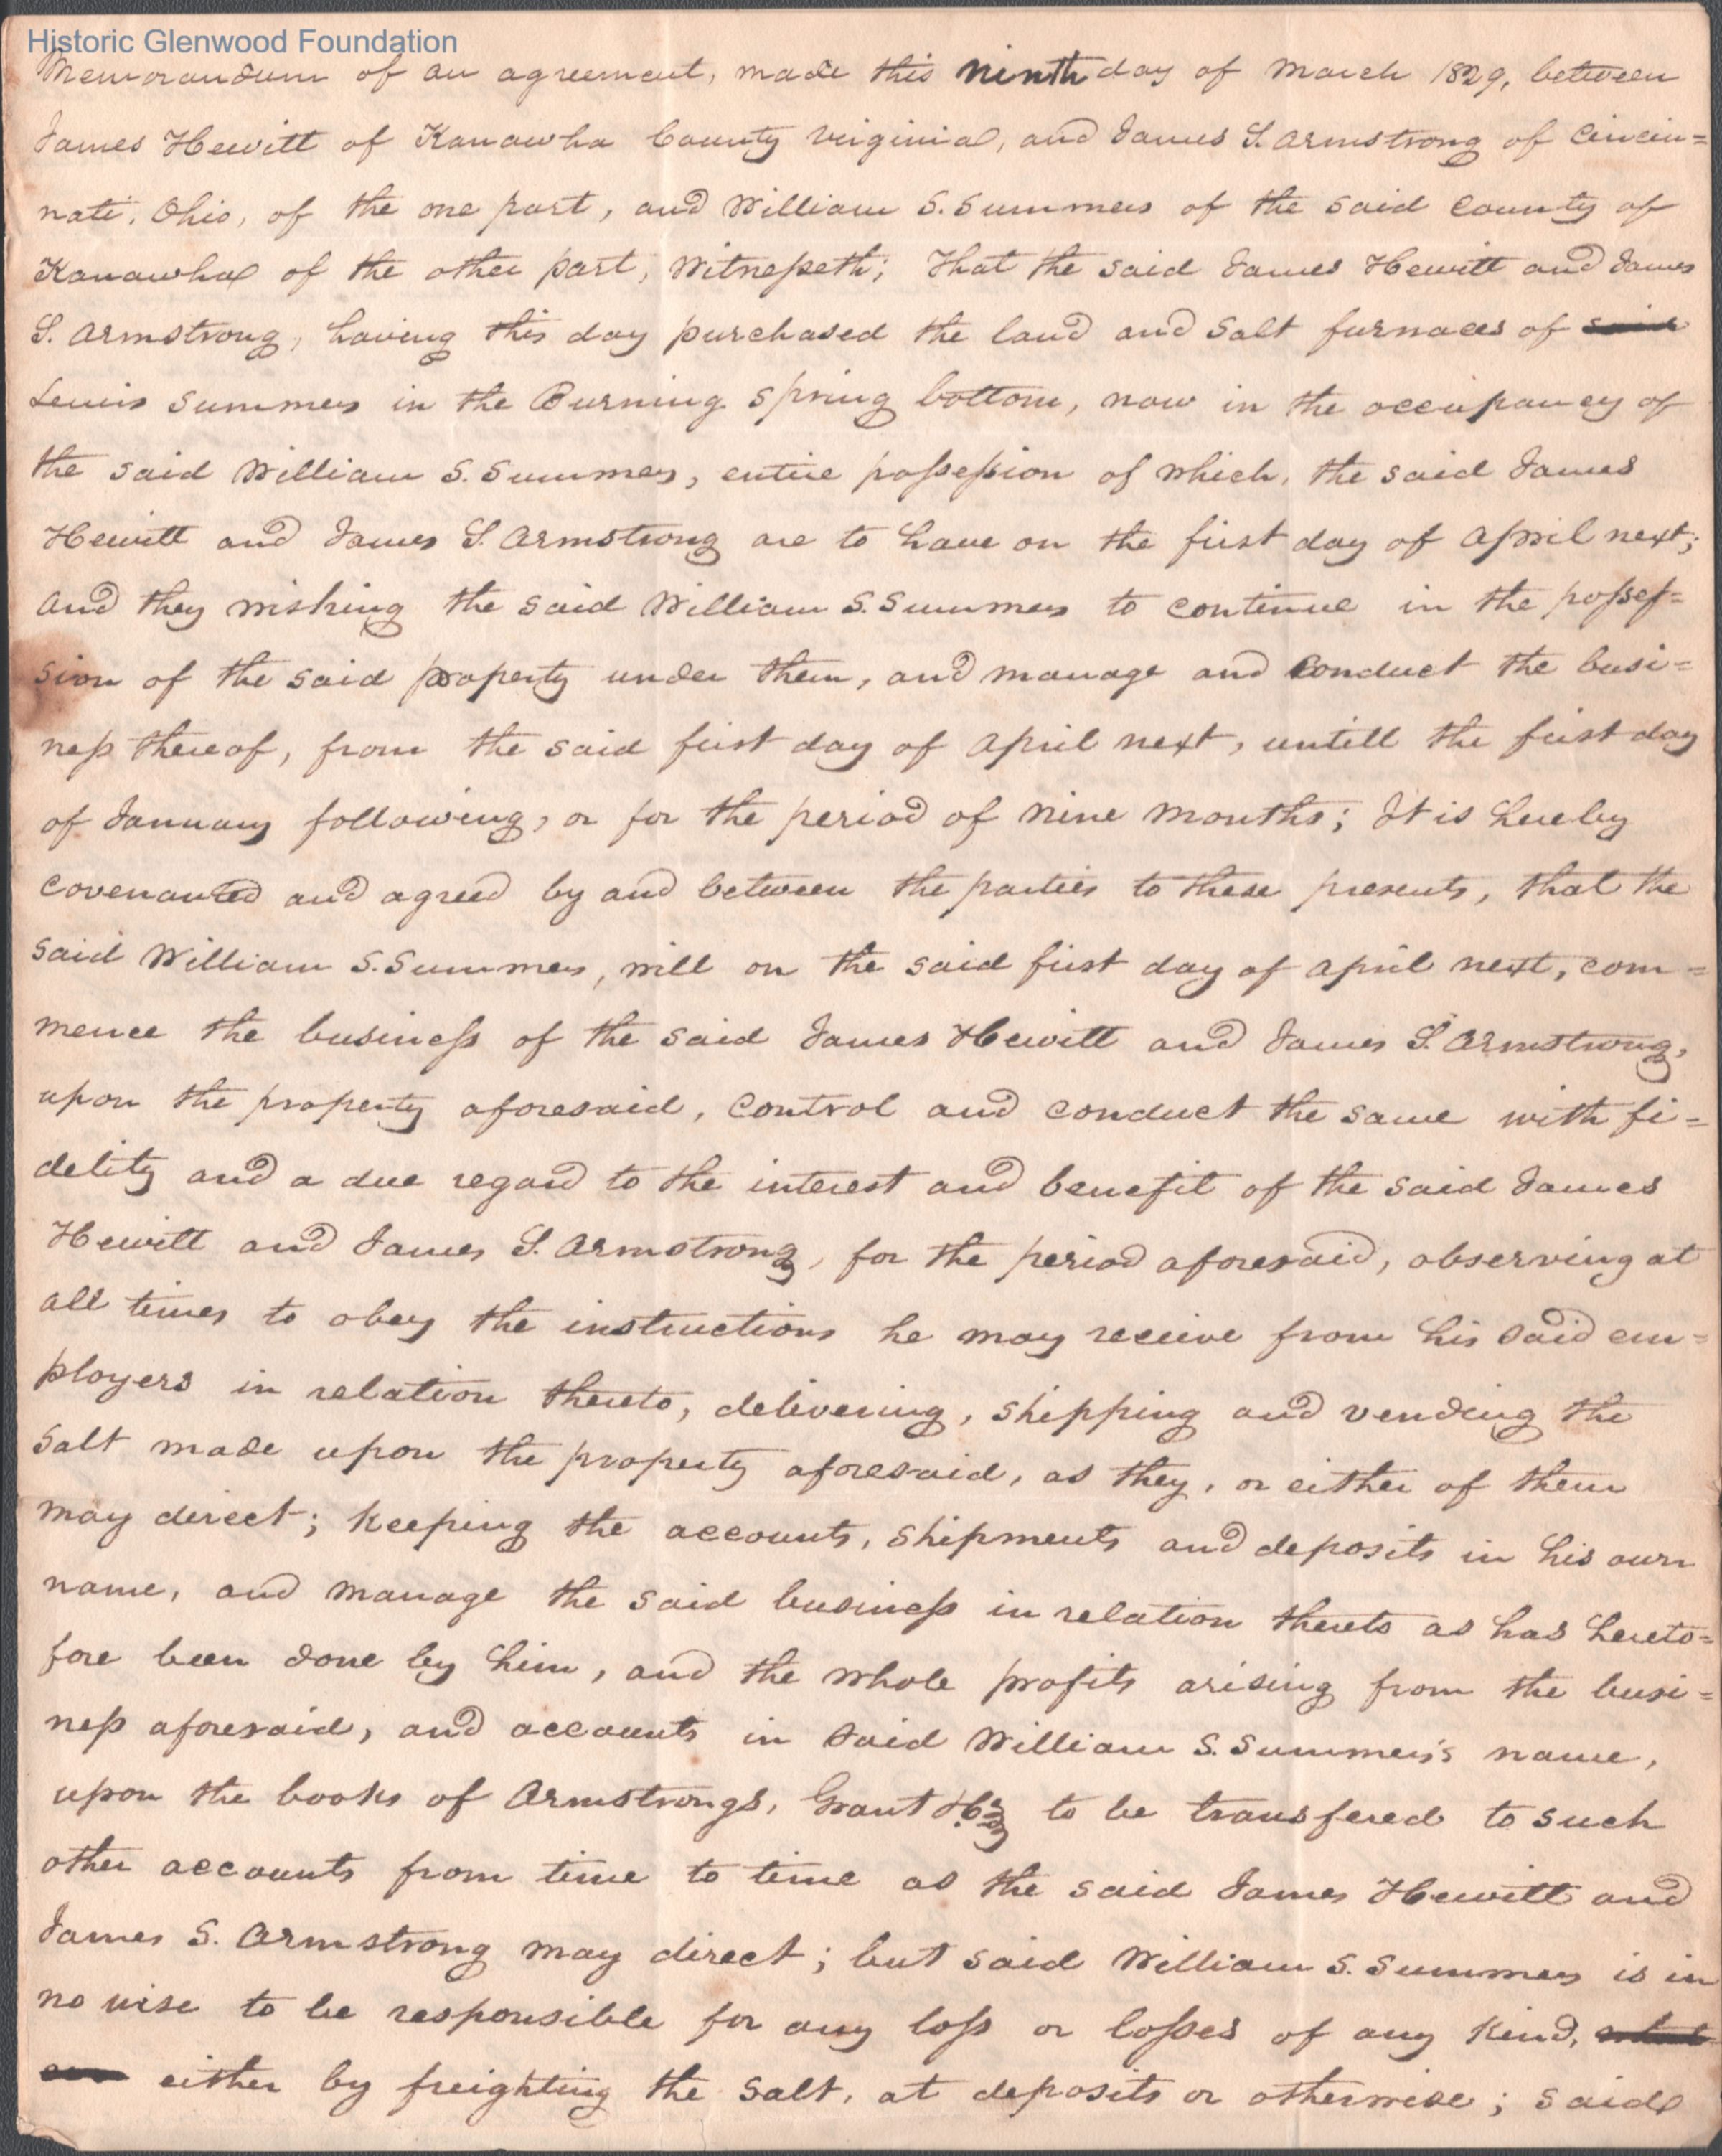 Historic Glenwood Foundation
Memorandum of an agreement, made this ninth day of March 1829, between
James Hewitt of Kanawha County Virginia, and James S. Armstrong of Cincin=
nati, Ohio, of the one part, and William S. Summers of the said County of
Kanawha of the other part, Witnesseth; That the said James Hewitt and James
S. Armstrong, having this day purchased the land and Salt furnaces of said
Lewis Summers in the Burning Spring bottom, now in the occupancy of
the said William S. Summers, entire possession of which, the said James
Hewitt and James S. Armstrong are to have on the first day of April next;
and they wishing the said William S. Summers to continue in the posses=
sion of the said property under them, and manage and Conduct the busi=
ness thereof, from the said first day of April next, untill the first day
of January following, or for the period of Nine Months; It is hereby
Covenanted and agreed by and between the parties to these presents, that the
said William S. Summers, will on the said first day of April next, com=
mence the business of the said James Hewitt and James S. Armstrong,
upon the property aforesaid, Control and conduct the same with fi=
delity and a due regard to the interest and benefit of the said James
Hewitt and James S. Armstrong, for the period aforesaid, observing at
all times to obey the instructions he may receive from his said em=
ployers in relation thereto, delivering, shipping and vending the
Salt made upon the property aforesaid, as they, or either of them
may direct; keeping the accounts, shipments and deposits in his own
name, and manage the said business in relation thereto as has hereto=
fore been done by him, and the whole profits arising from the busi=
ness aforesaid, and accounts in said William S. Summers's name,
upon the books of Armstrongs, Grant & Co to be transfered to such
other accounts from time to time as the said James Hewitt and
James S. Armstrong may direct; but said William S. Summers is in
no wise to be responsible for any loss or losses of any kind, what
ever either by freighting the Salt, at deposits or otherwise; said